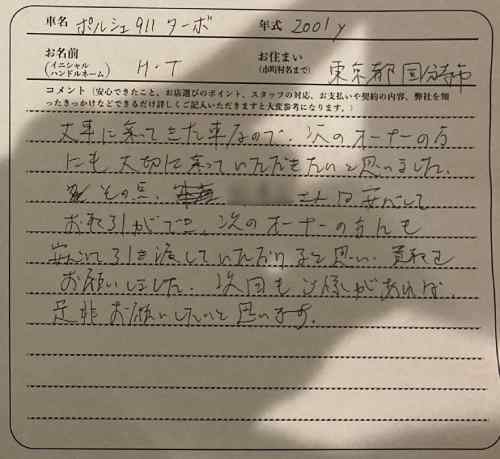 車名 ポルシェ911 ターボ 年式 2001y
お名前 (イニシャル ハンドルネーム) H・T お住まい (市町村名まで) 東京都国分寺市
コメント (安心できたこと、お店選びのポイント、スタッフの対応、お支払いや契約の内容、弊社を知
ったきっかけなどできるだけ詳しくご記入いただきますと大変参考になります。)
大事に乗ってきた車なので、次のオーナーの方
にも、大切に乗っていただきたいと思いました。
その点、 は安心して
お取引ができ、次のオーナーの方にも
安心して引き渡していただけると思い、買取を
お願いしました。次回も ご縁があれば、
是非お願いしたいと思います。